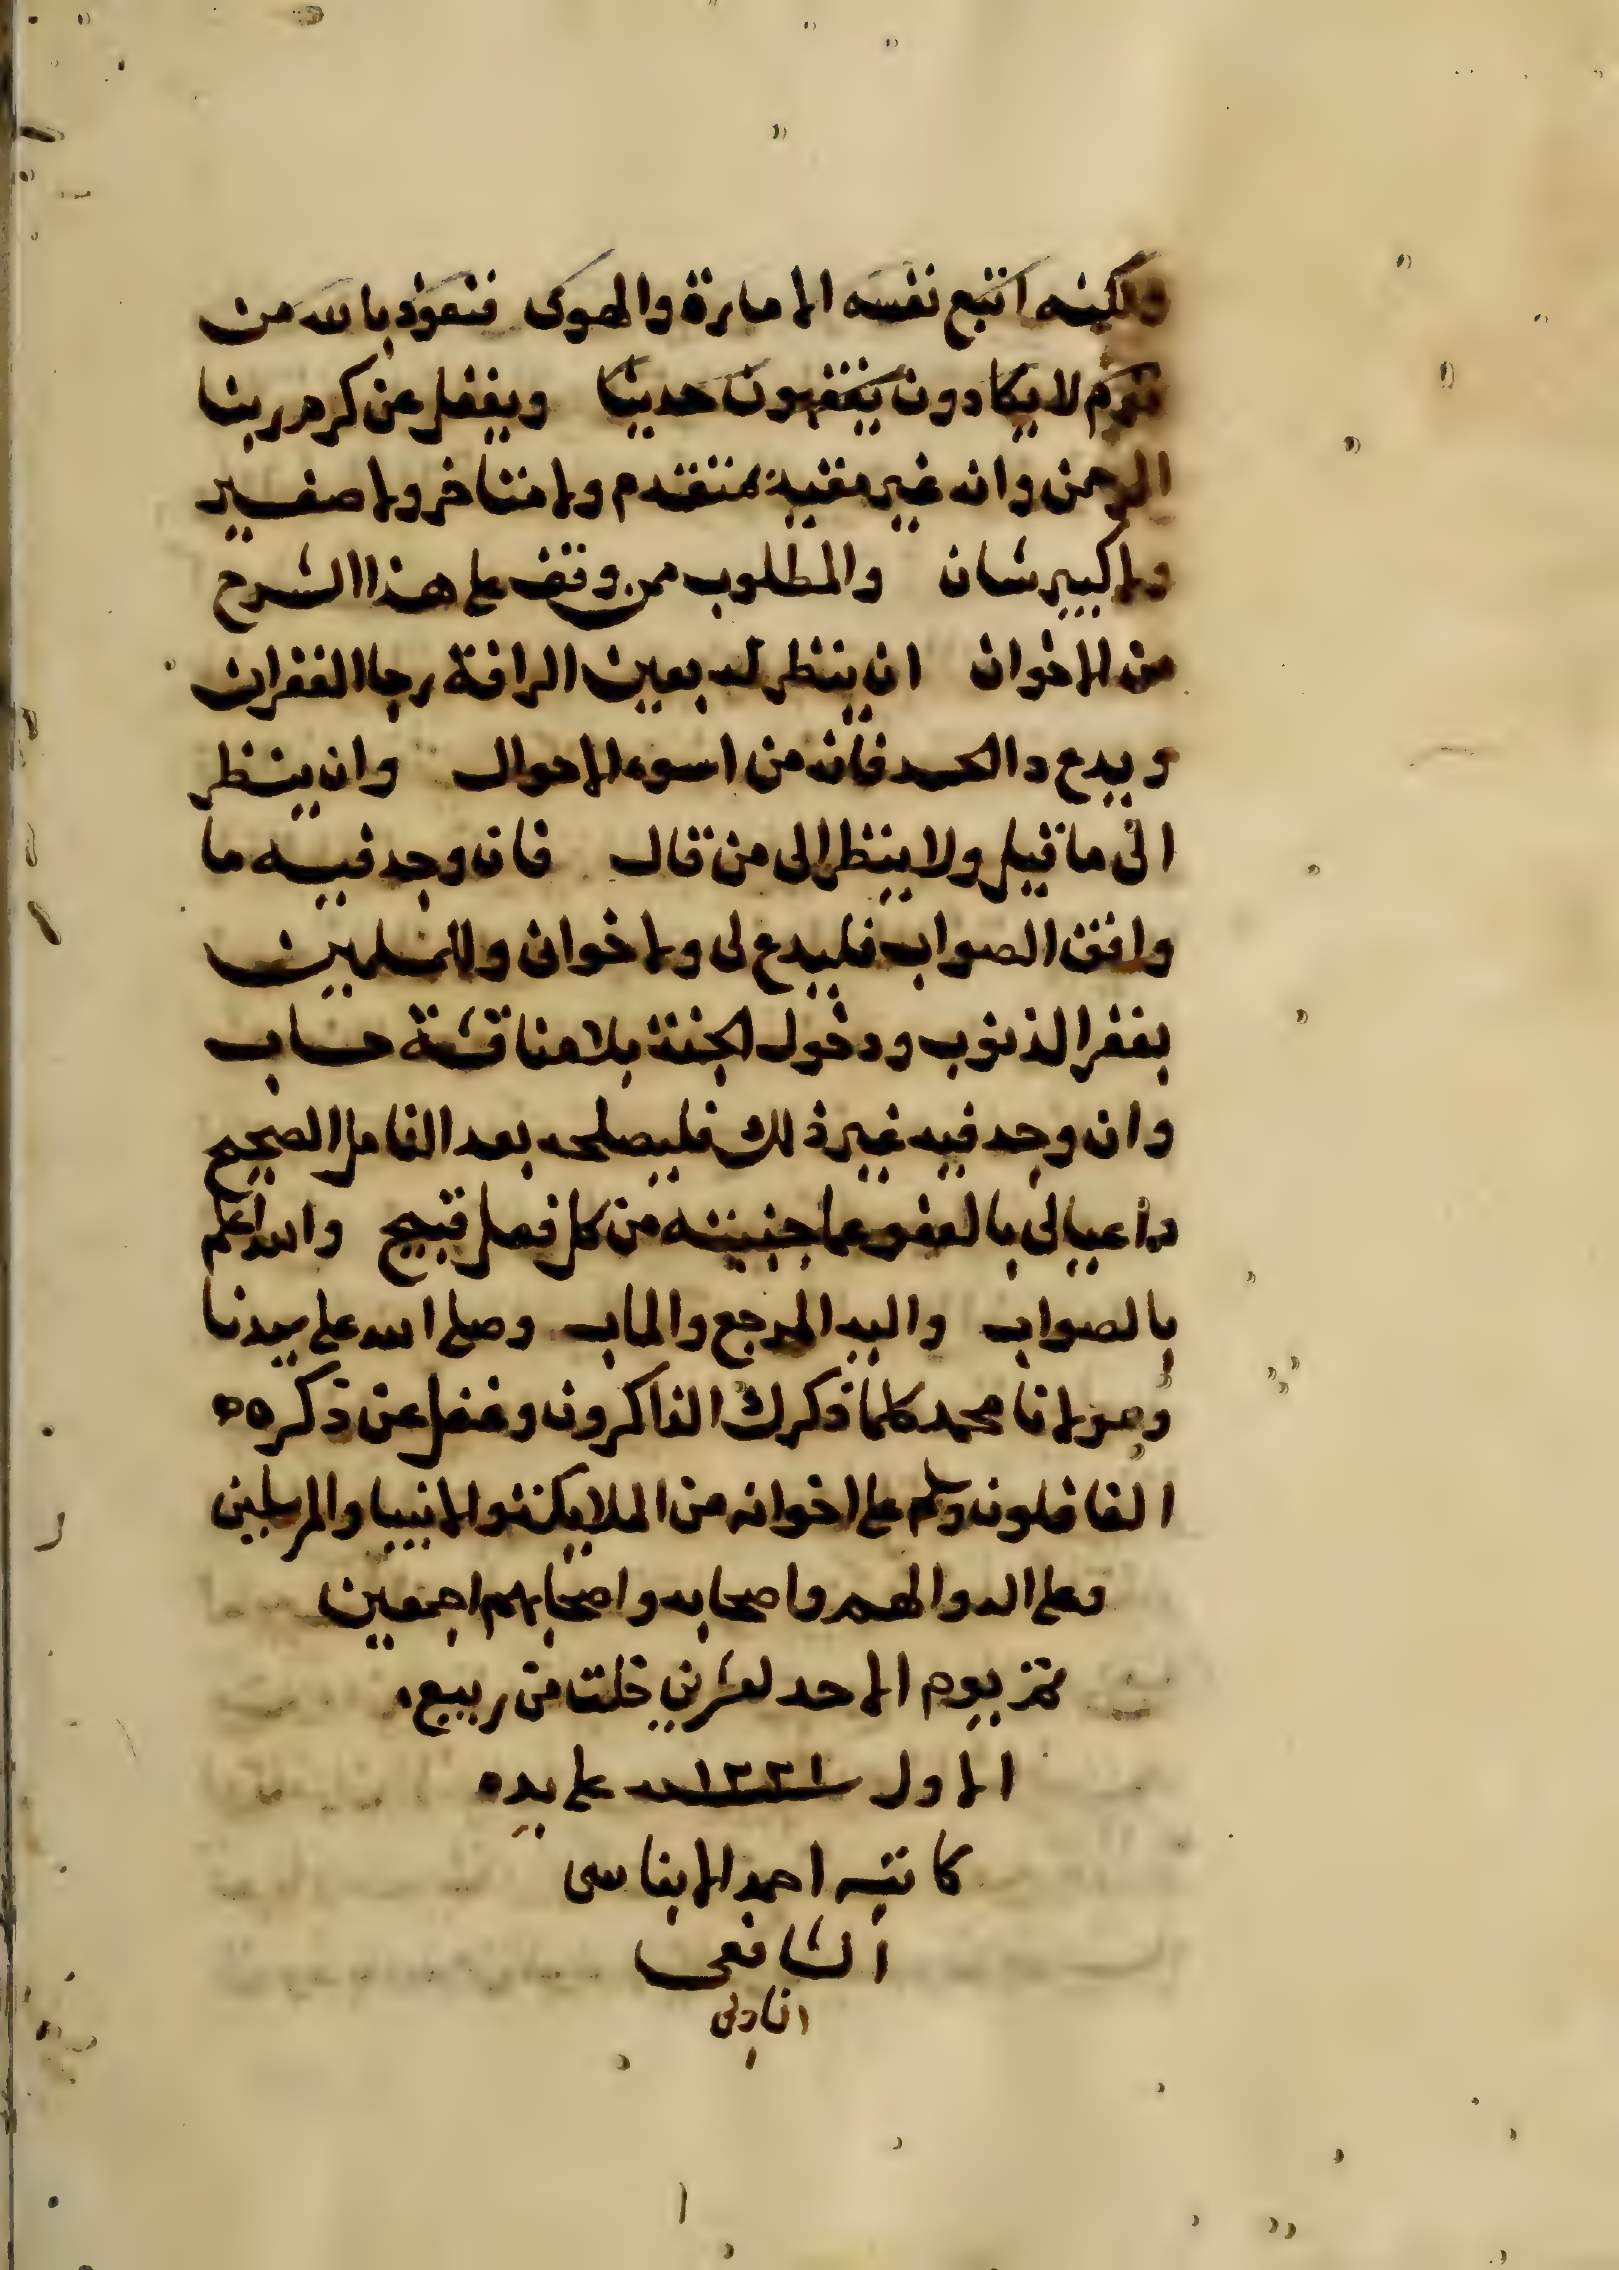 ولكنه اتبع نفسه الامارة والهوى فنعوذ بالله من
قوم لا يكادون يفقهون حديثا ويغفل عن كرم ربنا
الرحمن وانه غير مقيد بمتقدم ولا متاخر ولا صغير
ولا كبير شان والمطلوب ممن وقف على هذا الشرح
من الاخوان ان ينظر له بعين الرافة رجا الغفران
ويدع دا الحسد فانه من اسوء الاحوال وان ينظر
الى ما قيل ولا ينظر الى من قال فان وجد فيه ما
وافق الصواب فليدع لى ولاخوانى وللمسلمين
بغفر الذنوب ودخول الجنة بلا مناقشة حساب
وان وجد فيه غير ذلك فليصلحه بعد التامل الصحيح
داعيا لى بالعفو عما جنيته من كل فعل قبيح والله اعلم
بالصواب واليه المرجع والماب وصلى الله على سيدنا
ومولانا محمد كلما ذكرك الذاكرون وغفل عن ذكره
الغافلون وسلم على اخوانه من الملايكة والانبيا والمرسلين
وعلى اله والهم واصحابه واصحابهم اجمعين
تم يوم الاحد لعشرين خلت من ربيع
الاول ١٢٢١ على يد
كاتبه احمد الابناسى
الشافعى